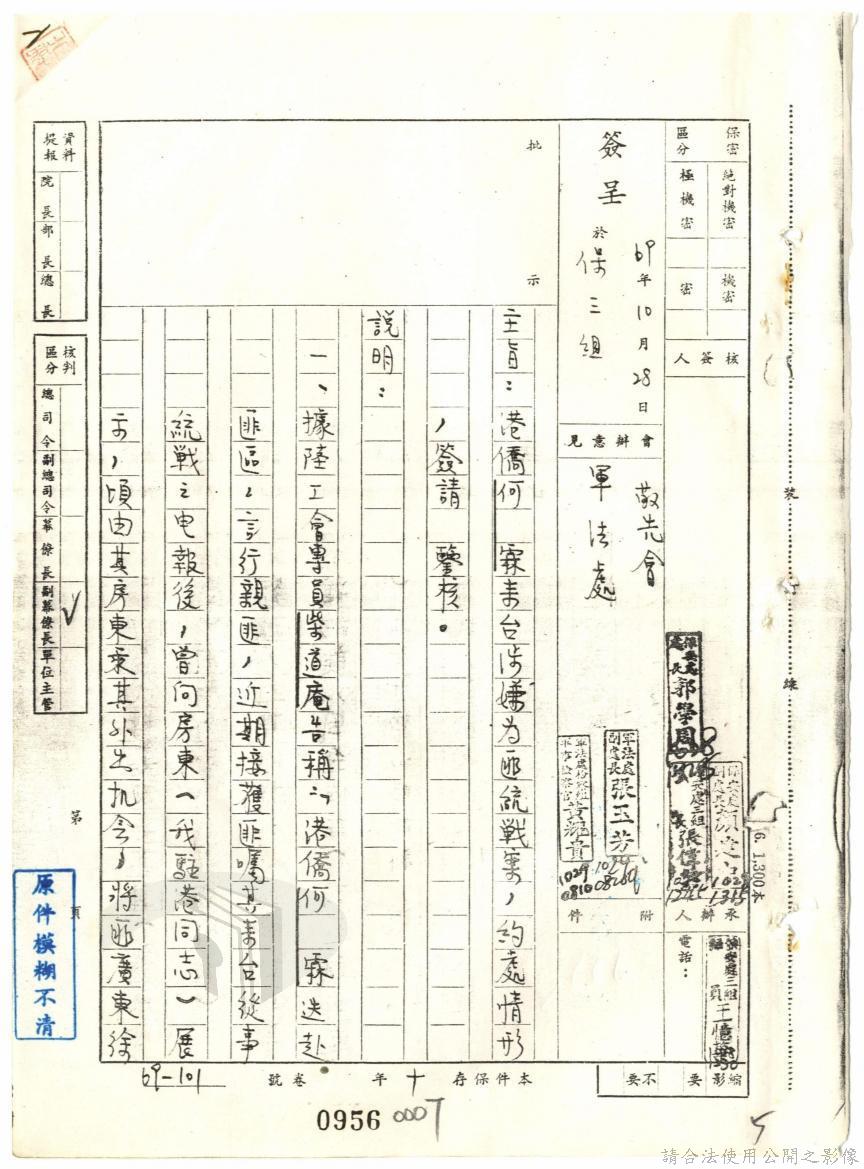 保密區分
絕對機密
極機密
機密
密
核簽人
簽呈
69年10月28日
於保三組
會辦意見
敬先會
軍法處
批示
保安處處長郭學周
軍法處副處長張玉芳
1029
0810
1315
承辦人
電話:
保安處三組
附件
主旨:港僑何 霖来台涉嫌为匪統战案,約處情形
,簽請 鑒核。
説明:
一、據陸工會專員柴道庵告稱:「港僑何 霖迭赴
匪區,言行親匪,近期接獲匪囑其来台從事
統战之电報後,曾向房東(我駐港同志)展
示,頃由其房東乘其外出机会,將匪廣東徐
資料提報
院長
部長
總長
核判區分
總司令
副總司令
幕僚長
副幕僚長
單位主管
第 頁
原件模糊不清
縮影
要
不要
本件保存十年
卷號
69-101
0956 0007
裝
6. 1.300本
請合法使用公開之影像